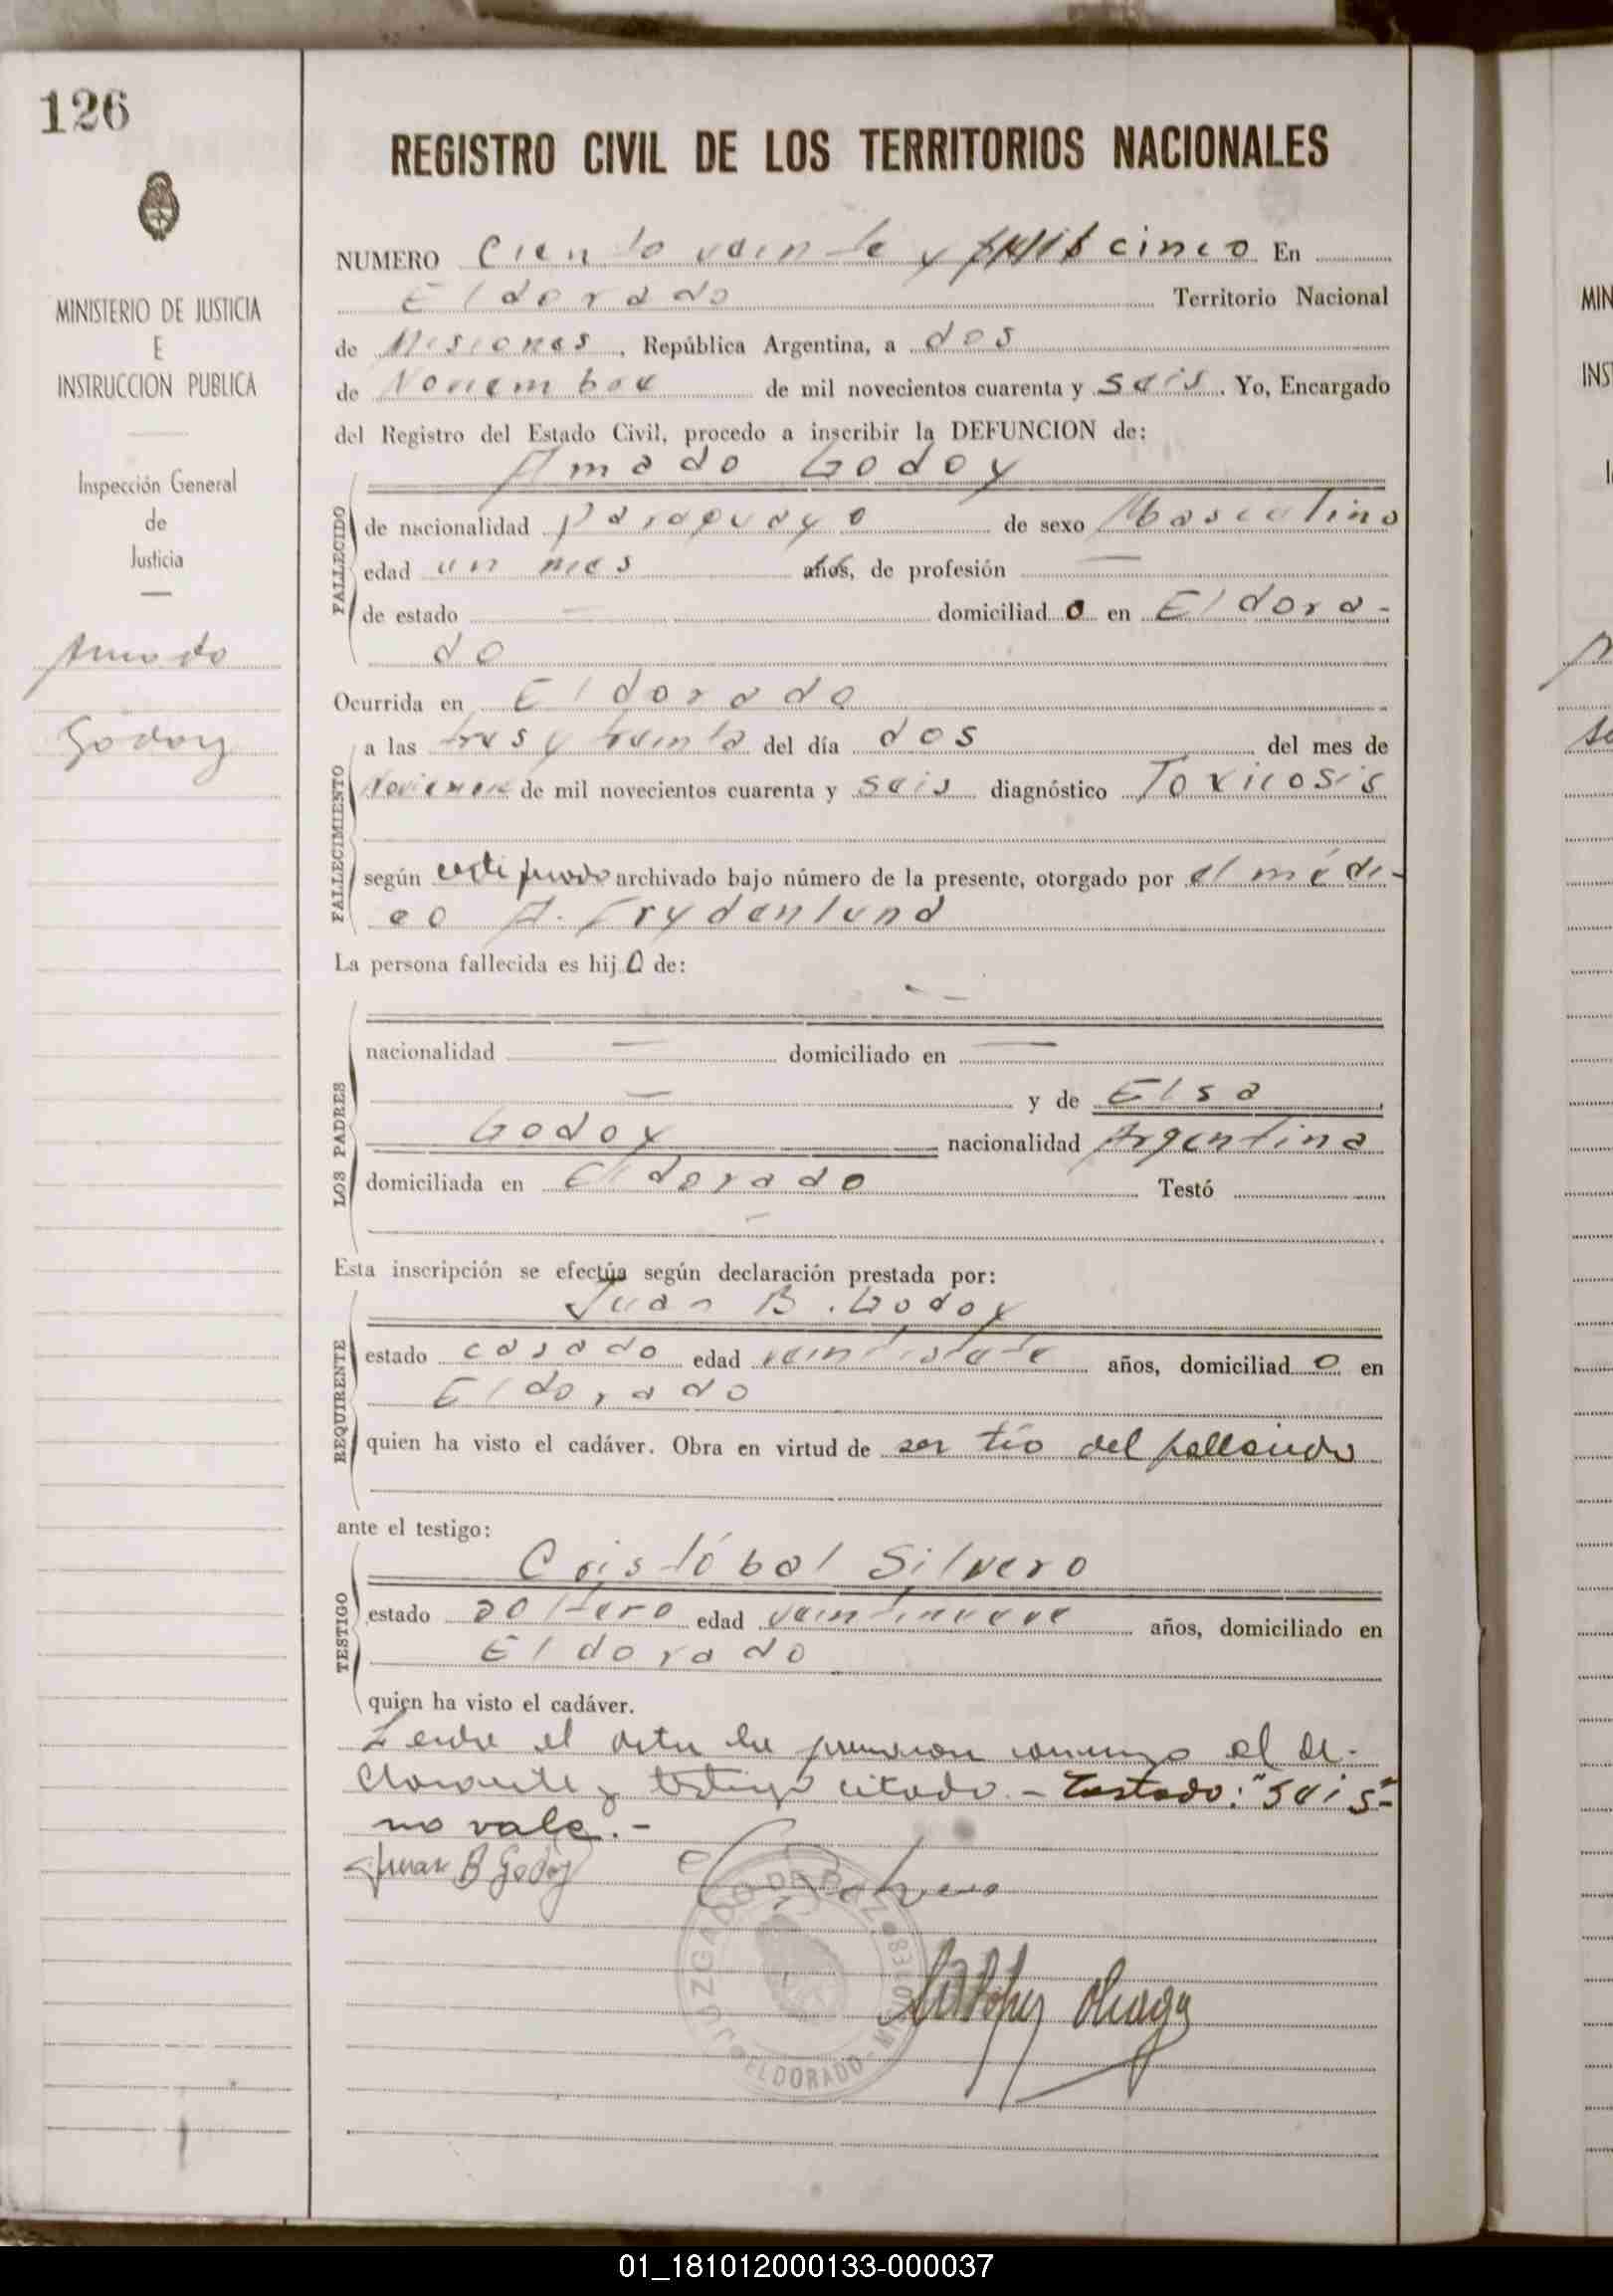 126
MINISTERIO DE JUSTICIA
E
INSTRUCCION PUBLICA
Inspección General
de
Justicia
Amado
Godoy
REGISTRO CIVIL DE LOS TERRITORIOS NACIONALES
NUMERO Ciento veinte y seis cinco En
Eldorado Territorio Nacional
de Misiones, República Argentina, a dos
de Noviembre de mil novecientos cuarenta y seis. Yo, Encargado
del Registro del Estado Civil, procedo a inscribir la DEFUNCION de:
Amado Godoy
FALLECIDO
de nacionalidad paraguayo de sexo Masculino
edad un mes años, de profesión —
de estado — domiciliado en Eldora-
do
Ocurrida en Eldorado
FALLECIMIENTO
a las tres y treinta del día dos del mes de
Noviembre de mil novecientos cuarenta y seis diagnóstico Toxicosis
según certificado archivado bajo número de la presente, otorgado por el médi-
co A. Frydenlund
La persona fallecida es hijo de:
LOS PADRES
—
nacionalidad — domiciliado en —
— y de Elsa
Godoy nacionalidad Argentina
domiciliada en Eldorado Testó
—
Esta inscripción se efectúa según declaración prestada por:
REQUIRENTE
Juan B. Godoy
estado casado edad veintisiete años, domiciliado en
Eldorado
quien ha visto el cadáver. Obra en virtud de ser tío del fallecido
ante el testigo:
TESTIGO
Cristóbal Silvero
estado soltero edad veintinueve años, domiciliado en
Eldorado
quien ha visto el cadáver.
Leida el acta la firmaron conmigo el de-
clarante y testigo citado.- Testado: "seis"-
no vale.-
Juan B Godoy
JUZGADO DE PAZ
ELDORADO - MISIONES
01_181012000133-000037